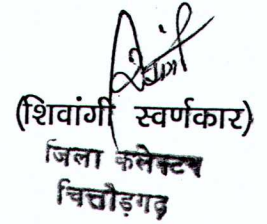 (शिवांगी स्वर्णकार)
जिला कलेक्टर
चित्तौड़गढ़